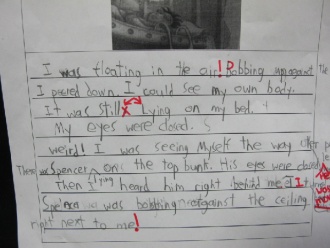 I was floating in the air! Bobbing up against The
I peered down. I could see my own body.
It was still Lying on my bed.
My eyes were closed.
weird! I was seeing Myself the way other pe
There was Spencer on the top bunk. His eyes were closed
Then I heard him right behind me. I turned
Spencer was bobbing against the ceiling
right next to me!